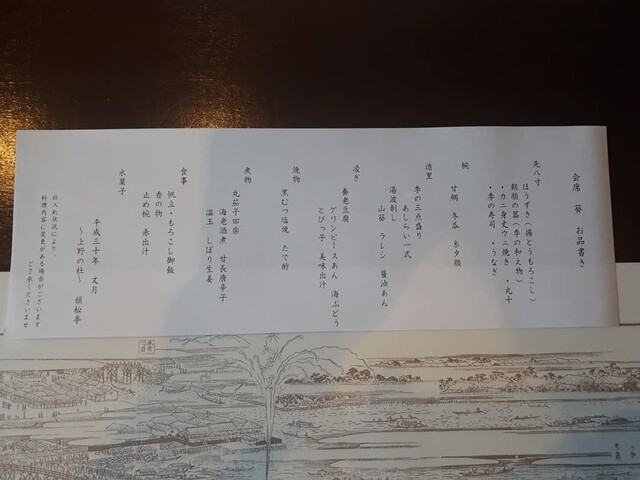 会席 葵 お品書き
先八寸
ほうずき(揚とうもろこし)
朝顔の器(季の和え物)
・カニ身丈ウニ焼き ・丸十
・季の寿司 ・うなぎ
椀
甘鯛 冬瓜 糸夕顔
造里
季の三点盛り
あしらい一式
湯波刺し
山葵 ラレシ 醤油あん
凌ぎ
養老豆腐
グリンピースあん 海ぶどう
とびっ子 美味出汁
焼物
黒むつ塩焼 たで酢
煮物
丸茄子田楽
海老酒煮 甘長唐辛子
温玉 しぼり生姜
食事
帆立・もろこし御飯
香の物
止め椀 赤出汁
水菓子
平成三十年 文月
〜上野の杜〜 韻松亭
仕入れ状況により
料理内容に変更がある場合がございます
ご了承くださいませ